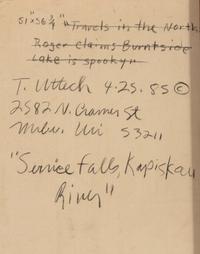 51" x 36 1/4" "Travels in the North
Roger claims Burntside
Lake is spooky"
T. Uttech 4-25-85 ©
2582 N. Cramer St
Milw. Wi 53211
"Service Falls, Kapiskau
River"